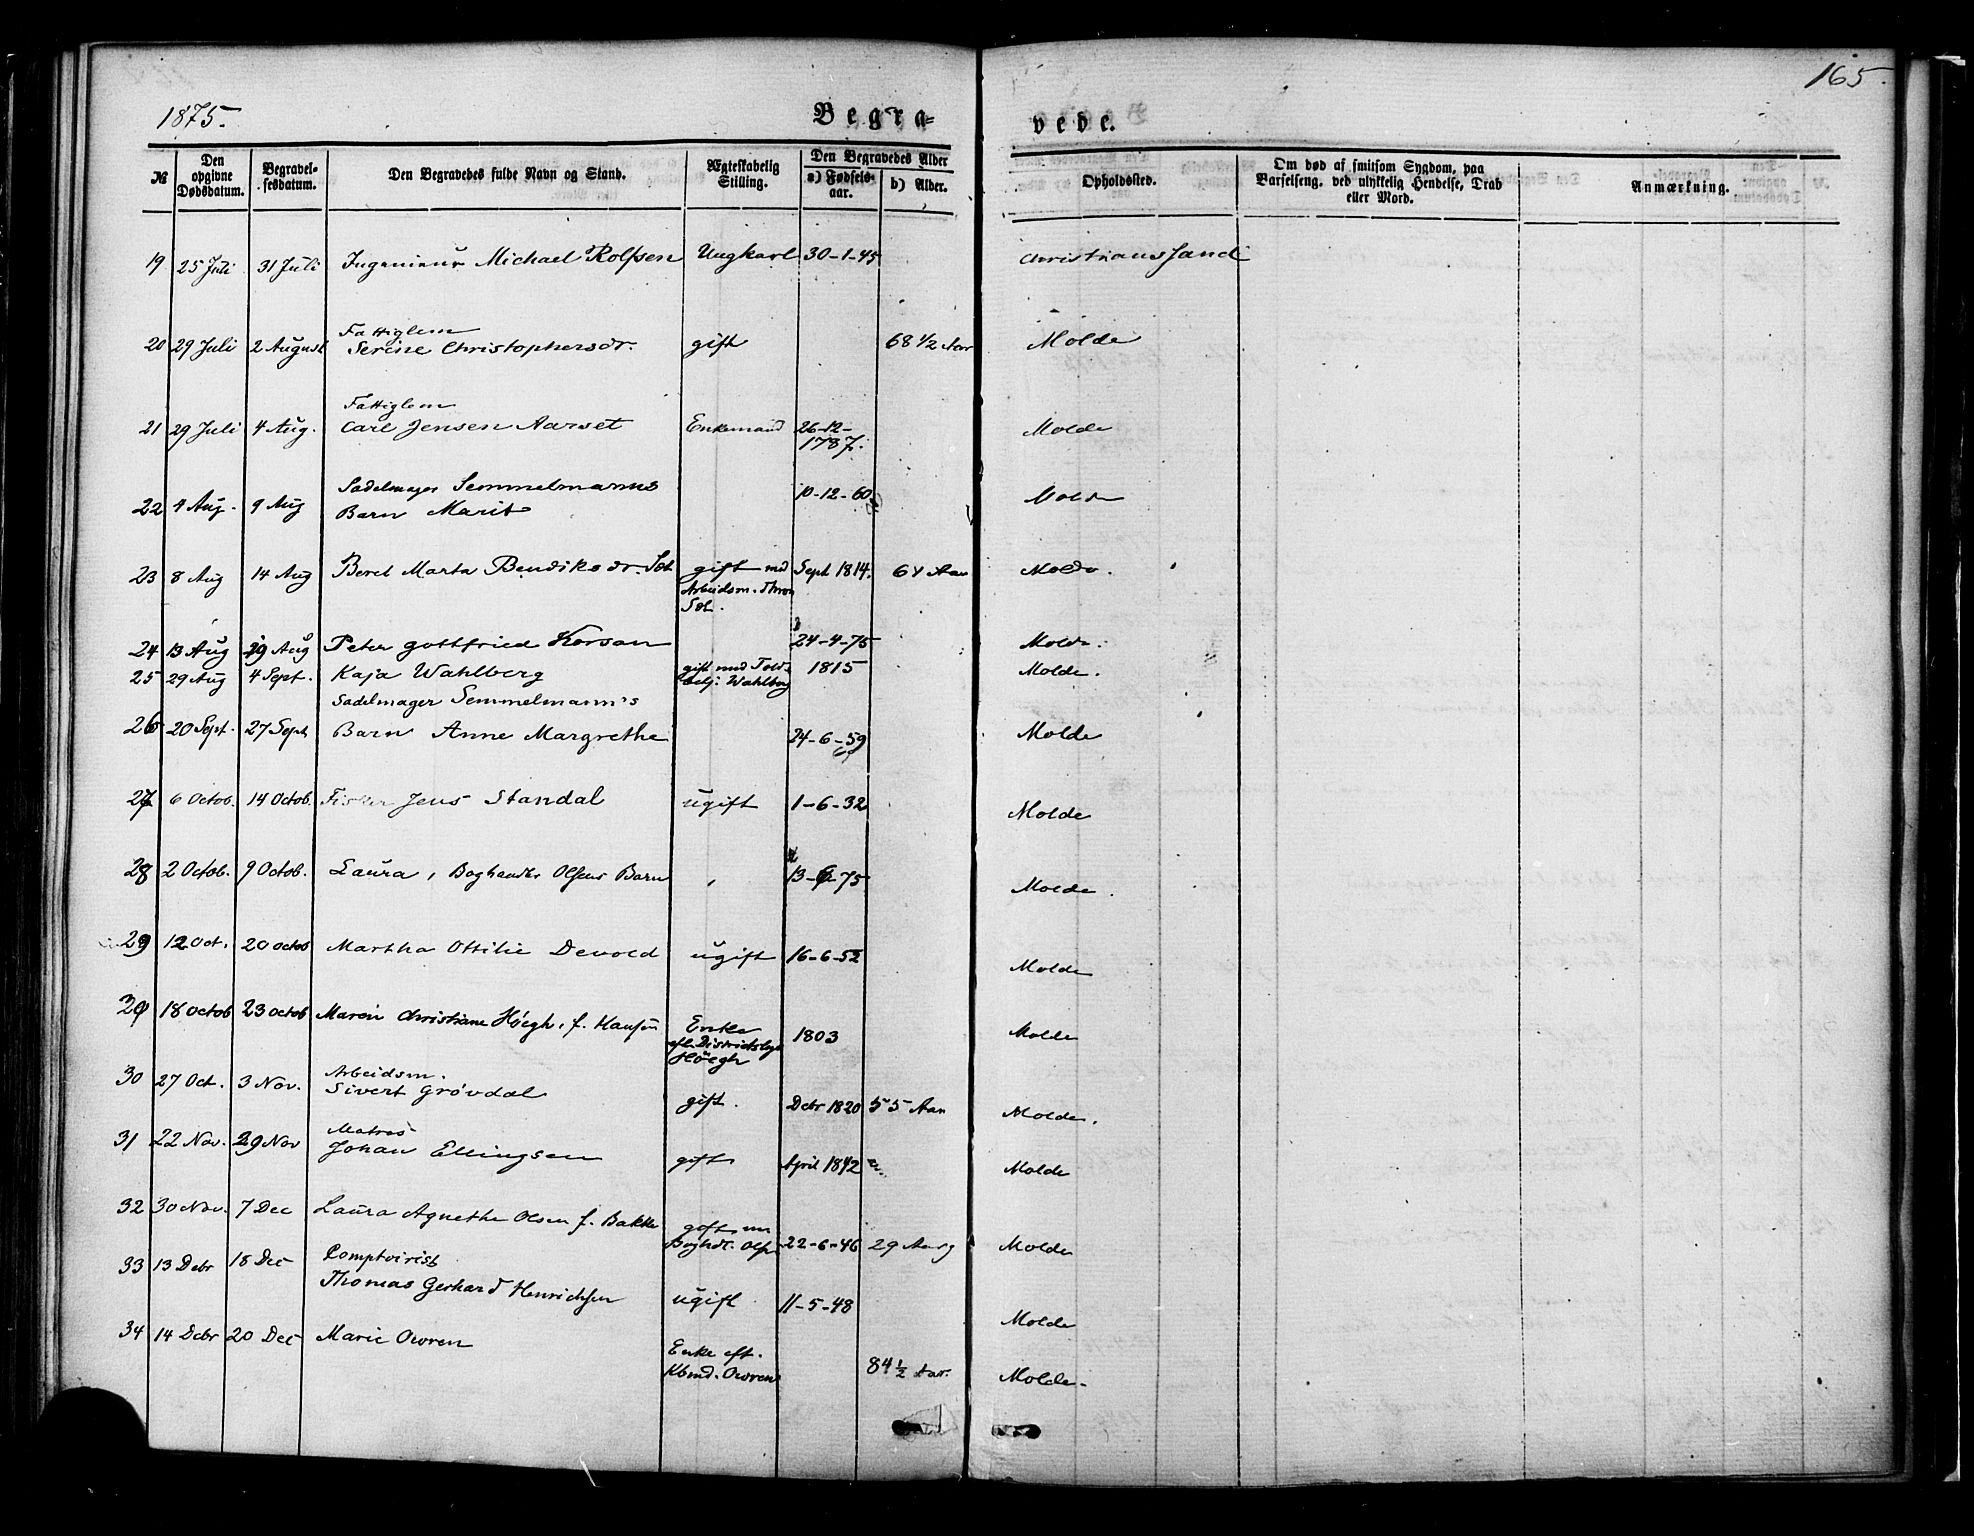 1875.
Begra=
vede.
165.
№
Den opgivne Dødsdatum.
Begravelsesdatum.
Den Begravedes fulde Navn og Stand.
Ægteskabelig Stilling.
Den Begravedes Alder
a) Fødselsaar.
b) Alder.
Opholdssted.
Om død af smitsom Sygdom, paa Barselseng, ved ulykkelig Hendelse, Drab eller Mord.
Anmærkning.
19 25 Juli 31 Juli Ingenieur Michael Rolfsen Ungkarl 30-1-45 Christianssand
Fattiglem
20 29 Juli 2 August Serine Christophersdr. gift 68 1/2 Aar Molde
Fattiglem
21 29 Juli 4 Aug. Carl Jensen Aarset Enkemand 26-12-1787. Molde
Sadelmager Semmelmanns
22 4 Aug. 9 Aug Barn Marit 10-12-60 Molde
23 8 Aug 14 Aug Beret Marta Bendiksdr. Sæt gift md Sept 1814. 61 Aar Molde.
Arbeidsm.
Sæt.
24 13 Aug 19 Aug Peter Gottfried Korsan 24-4-75 Molde.
25 29 Aug 4 Sept. Kaja Wahlberg gift med Told betj. Wahlberg 1815 Molde.
Sadelmager Semmelmann's
26 20 Sept. 27 Sept Barn Anne Margrethe 24-6-59 Molde
27 6 Octob. 14 Octob. Fisker Jens Standal ugift 1-6-32 Molde
28 2 Octob. 9 Octob. Laura, Boghandler Olsens Barn 13-6-75 Molde.
29 12 Oct. 20 Octob Martha Ottilie Devold ugift 16-6-52 Molde
29 18 Octob 23 Octob Maren Christiane Høegh, f. Hansen Enke 1803 Molde
eft. Districtslæge
Høegh
Arbeidsm.
30 27 Oct. 3 Nov. Sivert Grøvdal gift. Debr 1820 55 Aar Molde.
Matros
31 22 Nov. 29 Nov Johan Ellingsen gift April 1842 Molde
32 30 Nov. 7 Dec Laura Agnethe Olsen f. Bakke gift m Boghdl. Olsen 22-6-46 29 Aar Molde
Comptoirist
33 13 Debr 18 Dec Thomas Gerhard Henrichsen ugift 11-5-48 Molde
34 14 Debr 20 Dec Marie Owren Enke eft. Kbmd. Owren 84 1/2 Aar. Molde.